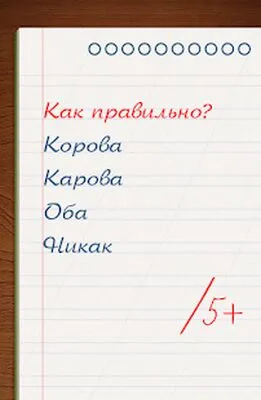 Как правильно?
Корова
Карова
Оба
Никак
/5+